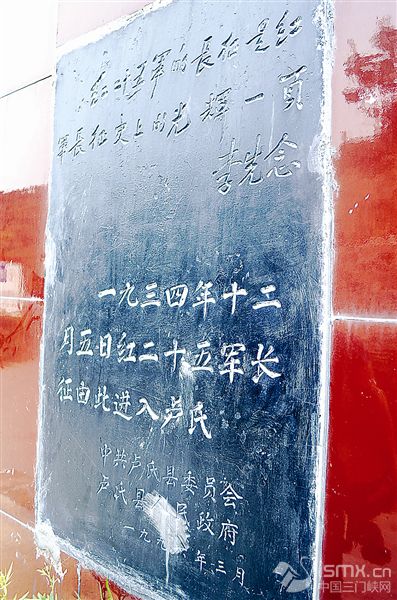 红廿五軍的長征是红
軍長征史上的光輝一頁
李先念
一九三四年十二
月五日红二十五军长
征由此进入卢氏
中共卢氏县委员会
卢氏县人民政府
一九 年三月
smx.cn
中国三门峡网